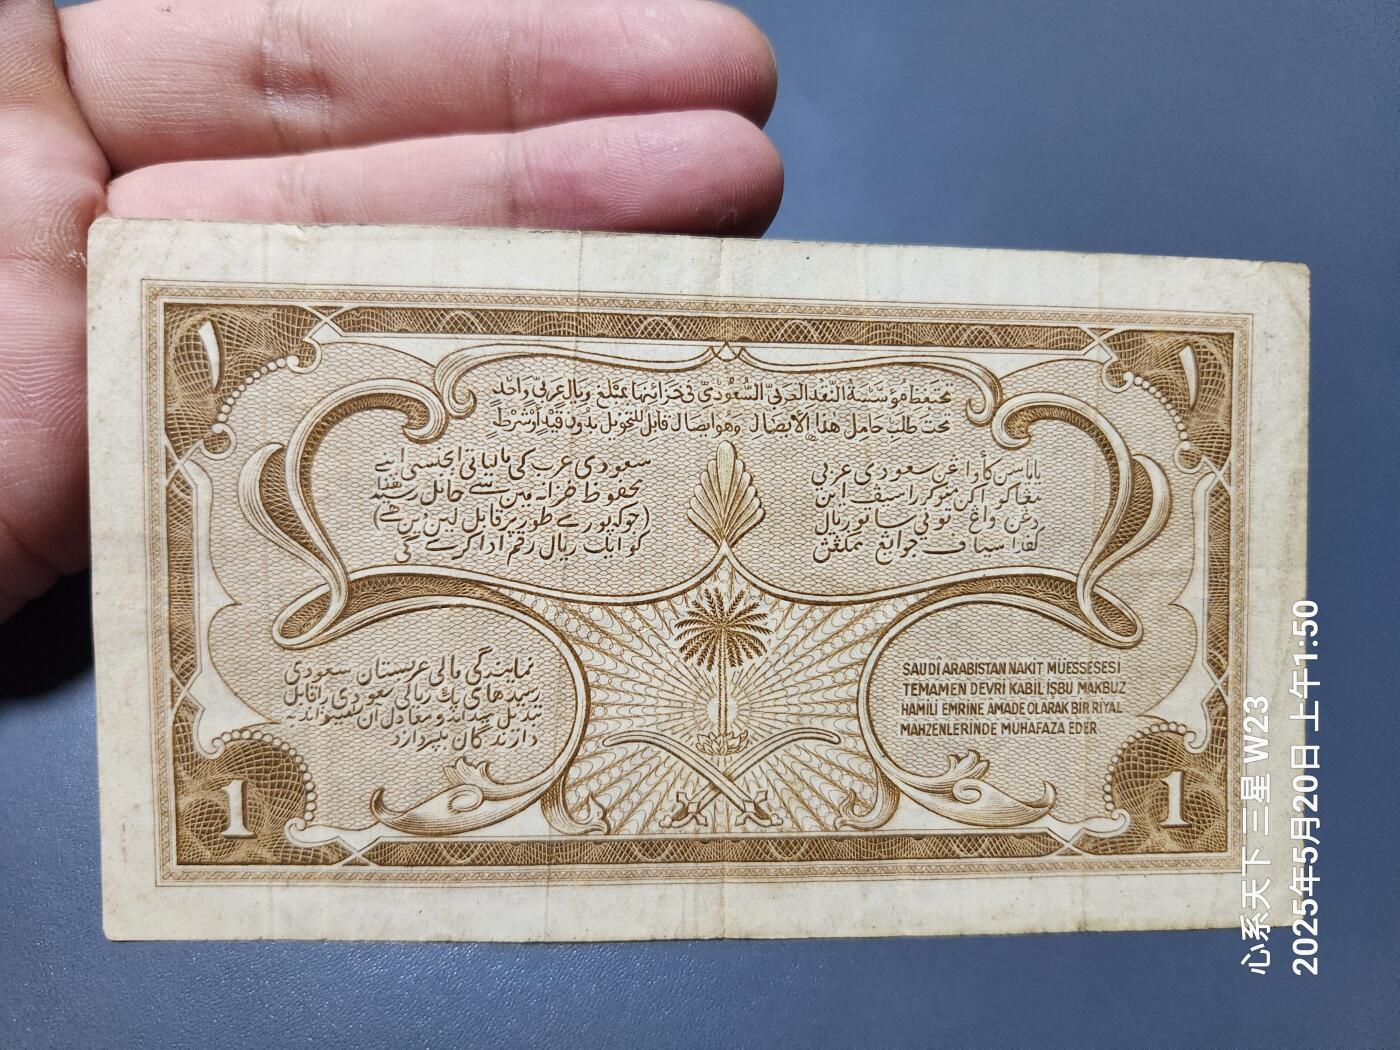 ١
١
تحتفظ مؤسسة النقد العربي السعودي في خزائنها بمبلغ ريال عربي واحد
تحت طلب حامل هذا الايصال وهو ايصال قابل للتحويل بدون قيد أو شرط
سعودی عرب کی مالیاتی ایجنسی اپنے
محفوظ خزانہ میں سے حامل رسید ھذا
(جو کہ پورے طور پر قابل لین دین ھے)
کو ایک ریال رقم ادا کرے گی
سعودي عربي
ريال
نمایندگی مالی عربستان سعودی
رسیدهای یک ریالی سعودی را قابل
SAUDİ ARABİSTAN NAKİT MÜESSESESİ
TEMAMEN DEVRİ KABİL İŞBU MAKBUZ
HAMİLİ EMRİNE AMADE OLARAK BİR RİYAL
MAHZENLERİNDE MUHAFAZA EDER
1
1
心系天下 三星 W23
2025年5月20日 上午1:50